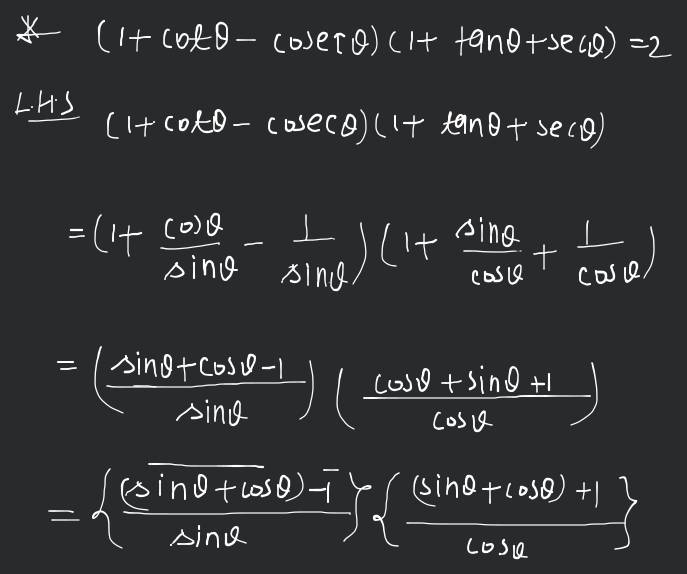 * (1+ cotθ − cosecθ)(1+ tanθ+secθ) =2
L.H.S (1+ cotθ − cosecθ)(1+ tanθ+ secθ)
= (1+ cosθ/sinθ − 1/sinθ) (1+ sinθ/cosθ + 1/cosθ)
= (sinθ+cosθ−1/sinθ) (cosθ+sinθ+1/cosθ)
= {(sinθ+cosθ)−1/sinθ}{(sinθ+cosθ)+1/cosθ}